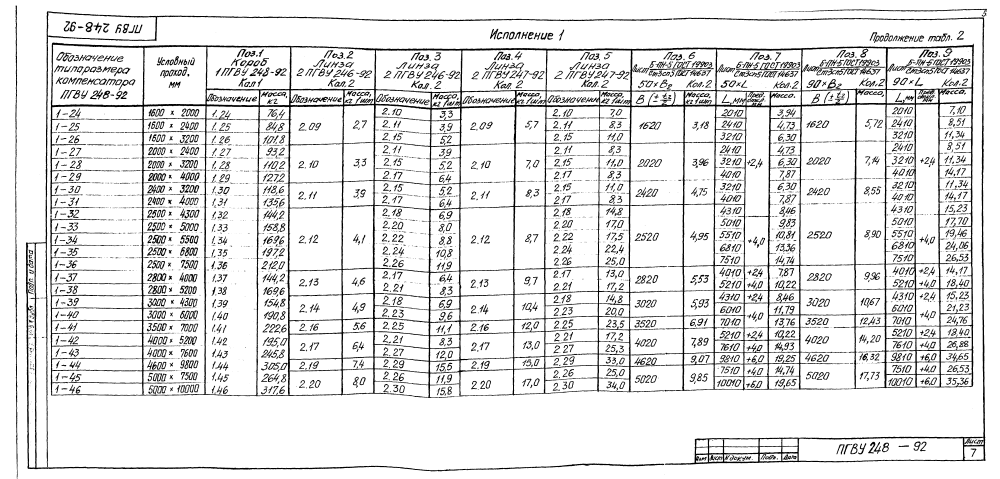 ПГВУ 248-92
Исполнение 1
Продолжение табл. 2
Обозначение типоразмера компенсатора ПГВУ 248-92 | Условный проход, мм | Поз.1 Короб 1 ПГВУ 248-92 Кол 1 | Поз. 2 Линза 2 ПГВУ 246-92 Кол. 2 | Поз. 3 Линза 2 ПГВУ 246-92 Кол. 2 | Поз. 4 Линза 2 ПГВУ 247-92 Кол. 2 | Поз. 5 Линза 2 ПГВУ 247-92 Кол. 2 | Поз. 6 | Поз. 7 | Поз. 8 | Поз. 9
1-24 1600 × 2000 1.24 76,4 2.10 3,3 2.10 7,0 2010 3,94 2010 7,10
1-25 1600 × 2400 1.25 84,8 2.09 2,7 2.11 3,9 2.09 5,7 2.11 8,3 1620 3,18 2410 4,73 1620 5,72 2410 8,51
1-26 1600 × 3200 1.26 101,8 2.15 5,2 2.15 11,0 3210 6,30 3210 11,34
1-27 2000 × 2400 1.27 93,2 2.11 3,9 2.11 8,3 2410 4,73 2410 8,51
1-28 2000 × 3200 1.28 110,2 2.10 3,3 2.15 5,2 2.10 7,0 2.15 11,0 2020 3,96 3210 +2,4 6,30 2020 7,14 3210 +2,4 11,34
1-29 2000 × 4000 1.29 127,2 2.17 6,4 2.17 8,3 4010 7,87 4010 14,17
1-30 2400 × 3200 1.30 118,6 2.11 3,9 2.15 5,2 2.11 8,3 2.15 11,0 2420 4,75 3210 6,30 2420 8,55 3210 11,34
1-31 2400 × 4000 1.31 135,6 2.17 6,4 2.17 8,3 4010 7,87 4010 14,17
1-32 2500 × 4300 1.32 144,2 2.18 6,9 2.18 14,8 4310 8,46 4310 15,23
1-33 2500 × 5000 1.33 158,8 2.20 8,0 2.20 17,0 5010 9,83 5010 17,70
1-34 2500 × 5500 1.34 169,6 2.12 4,1 2.22 8,8 2.12 8,7 2.22 17,5 2520 4,95 5510 +4,0 10,81 2520 8,90 5510 +4,0 19,46
1-35 2500 × 6800 1.35 197,2 2.24 10,8 2.24 22,4 6810 13,36 6810 24,06
1-36 2500 × 7500 1.36 212,0 2.26 11,9 2.26 25,0 7510 14,74 7510 26,53
1-37 2800 × 4000 1.37 144,2 2.13 4,6 2.17 6,4 2.13 9,7 2.17 13,0 2820 5,53 4010 +2,4 7,87 2820 9,96 4010 +2,4 14,17
1-38 2800 × 5200 1.38 169,6 2.21 8,3 2.21 17,2 5210 +4,0 10,22 5210 +4,0 18,40
1-39 3000 × 4300 1.39 154,8 2.14 4,9 2.18 6,9 2.14 10,4 2.18 14,8 3020 5,93 4310 +2,4 8,46 3020 10,67 4310 +2,4 15,23
1-40 3000 × 6000 1.40 190,8 2.23 9,6 2.23 20,0 6010 +4,0 11,79 6010 +4,0 21,23
1-41 3500 × 7000 1.41 222,6 2.16 5,6 2.25 11,1 2.16 12,0 2.25 23,5 3520 6,91 7010 13,76 3520 12,43 7010 24,76
1-42 4000 × 5200 1.42 195,0 2.17 6,4 2.21 8,3 2.17 13,0 2.21 17,2 4020 7,89 5210 +2,4 10,22 4020 14,20 5210 +2,4 18,40
1-43 4000 × 7600 1.43 245,8 2.27 12,0 2.27 25,3 7610 +4,0 14,93 7610 +4,0 26,88
1-44 4600 × 9800 1.44 305,0 2.19 7,4 2.29 15,5 2.19 15,0 2.29 33,0 4620 9,07 9810 +6,0 19,25 4620 16,32 9810 +6,0 34,65
1-45 5000 × 7500 1.45 264,8 2.20 8,0 2.26 11,9 2.20 17,0 2.26 25,0 5020 9,85 7510 +4,0 14,74 5020 17,73 7510 +4,0 26,53
1-46 5000 × 10000 1.46 317,6 2.30 15,8 2.30 34,0 10010 +6,0 19,65 10010 +6,0 35,36
Изм Лист N докум. Подп. Дата
ПГВУ 248 — 92
Лист
7